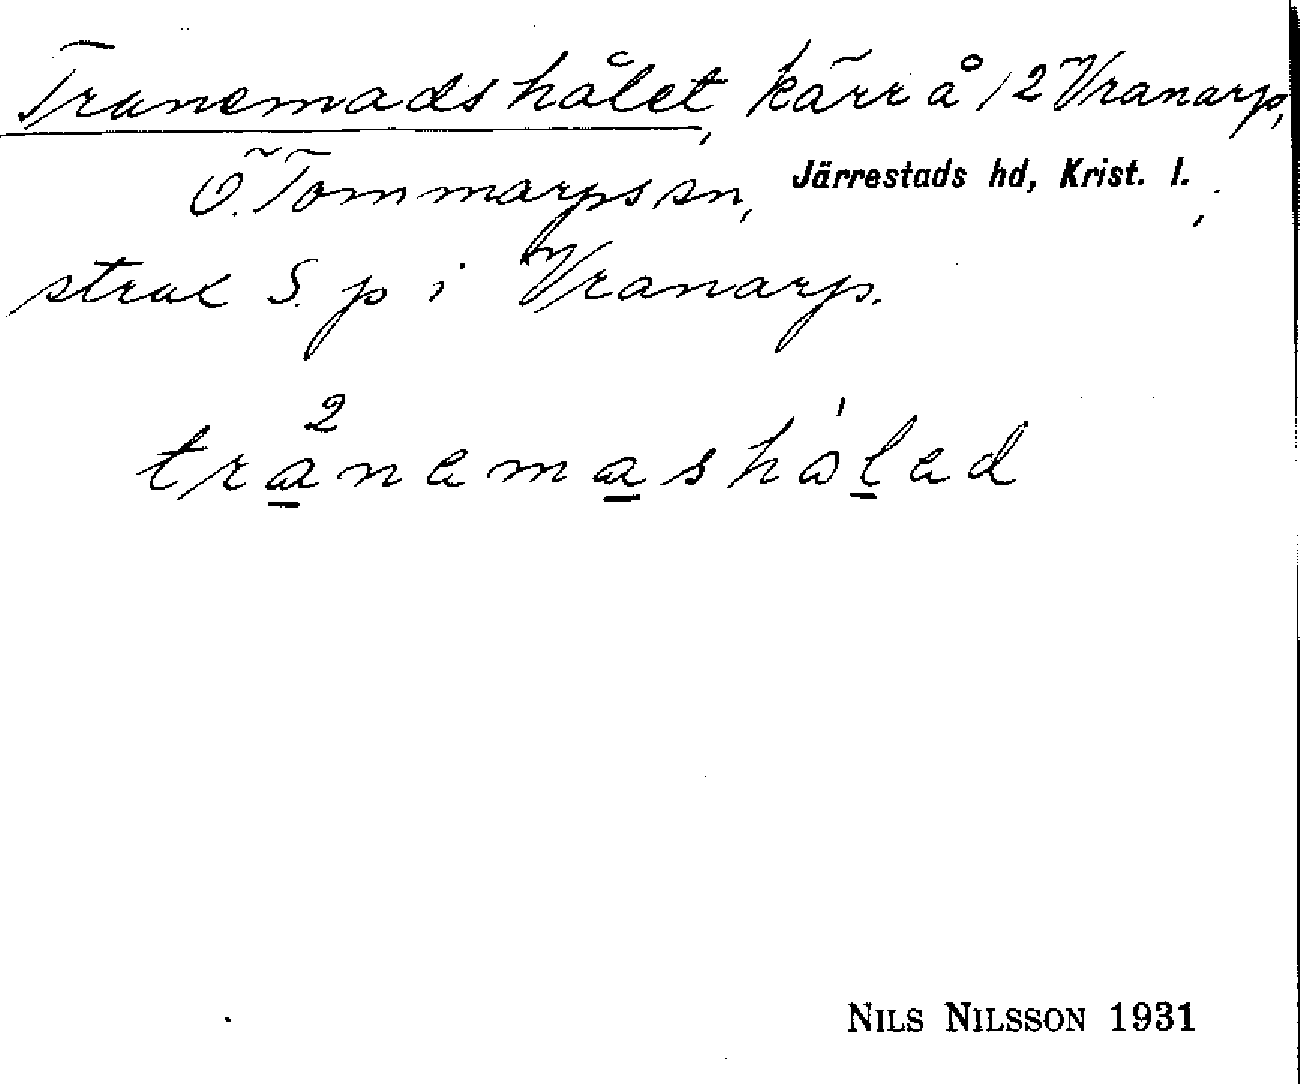 Tranemadshålet, kärr å 12 Vranarp,
Ö. Tommarps sn, Järrestads hd, Krist. l.,
strax S. p i Vranarp.
tranemashålad
NILS NILSSON 1931